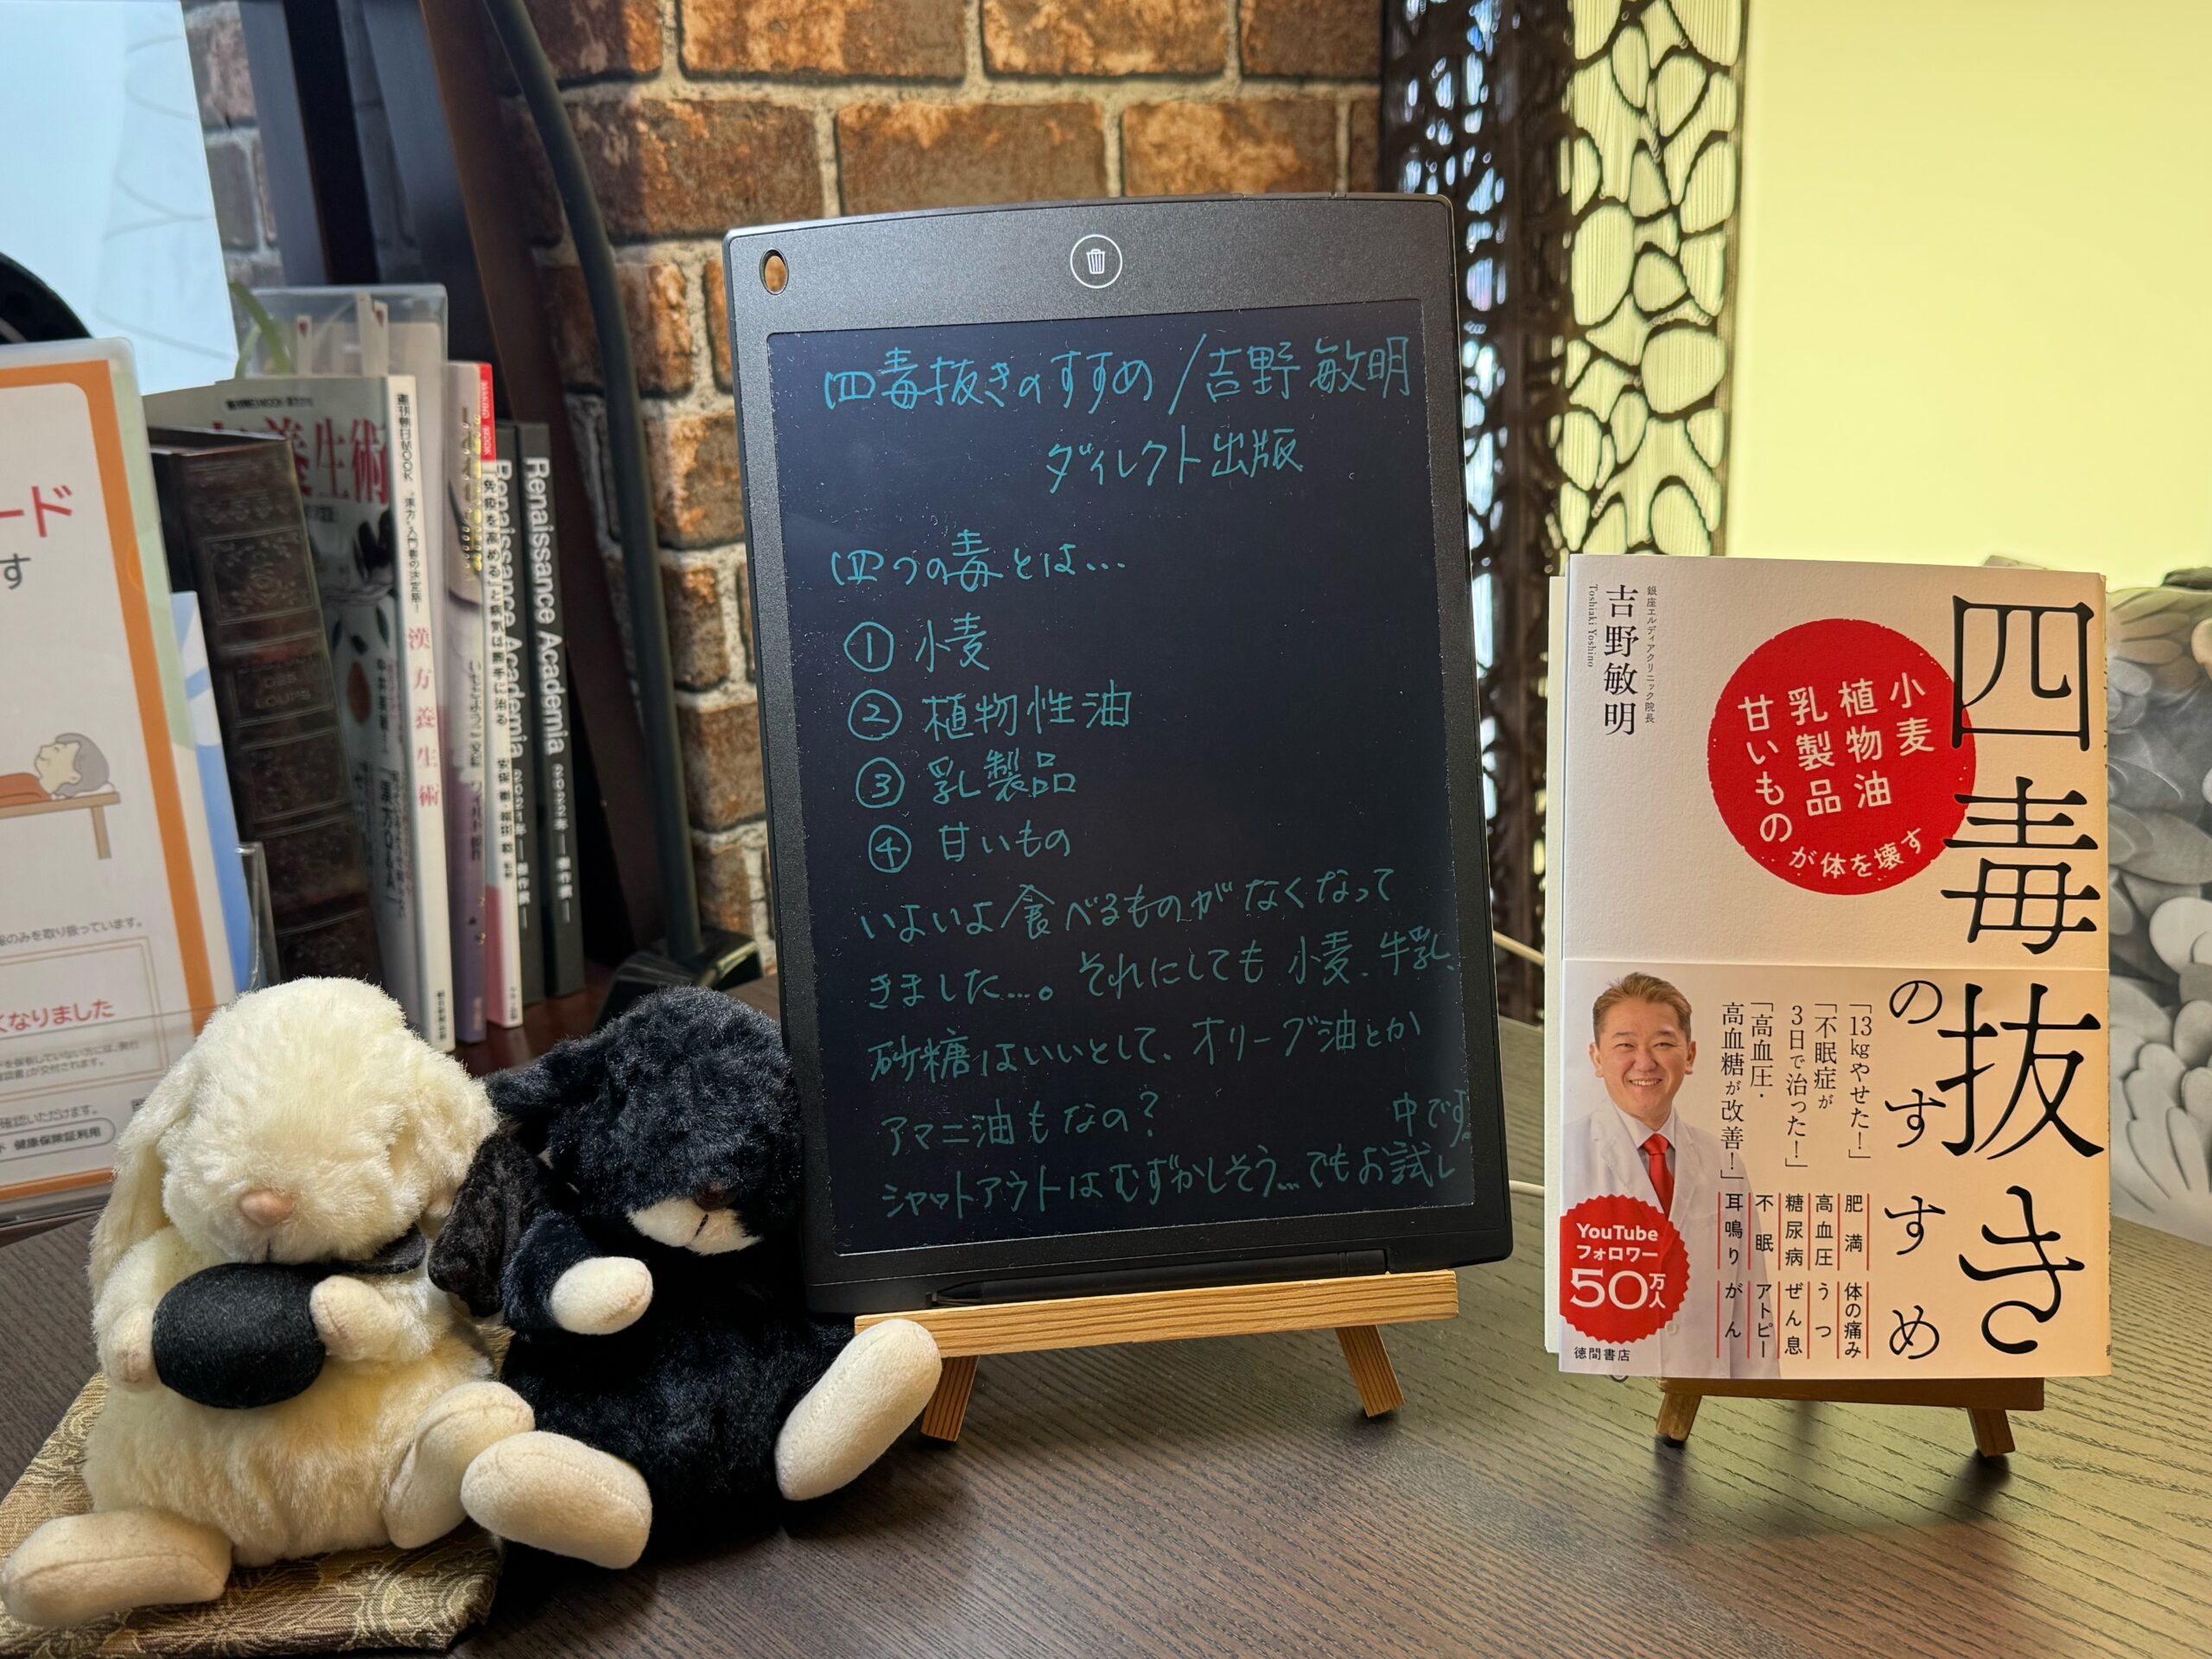 四毒抜きのすすめ/吉野敏明
ダイレクト出版
四つの毒とは…
① 小麦
② 植物性油
③ 乳製品
④ 甘いもの
いよいよ食べるものがなくなって
きました…。それにしても小麦、牛乳、
砂糖はいいとして、オリーブ油とか
アマニ油もなの?
シャットアウトはむずかしそう…でもお試し
中です。
四毒抜きのすすめ
小麦
植物油
乳製品
甘いものが体を壊す
銀座エルディアクリニック院長
吉野敏明
Toshiaki Yoshino
「13kgやせた!」
「不眠症が
3日で治った!」
「高血圧・
高血糖が改善!」
肥満
高血圧
糖尿病
不眠
耳鳴り
体の痛み
うつ
ぜん息
アトピー
がん
YouTube
フォロワー
50万人
徳間書店
ード
す
報のみを取り扱っています。
くなりました
健康保険証利用
養生術
漢方養生術
「免疫を高める」と病気は勝手に治る
Renaissance Academia 2021年
Renaissance Academia 2022年